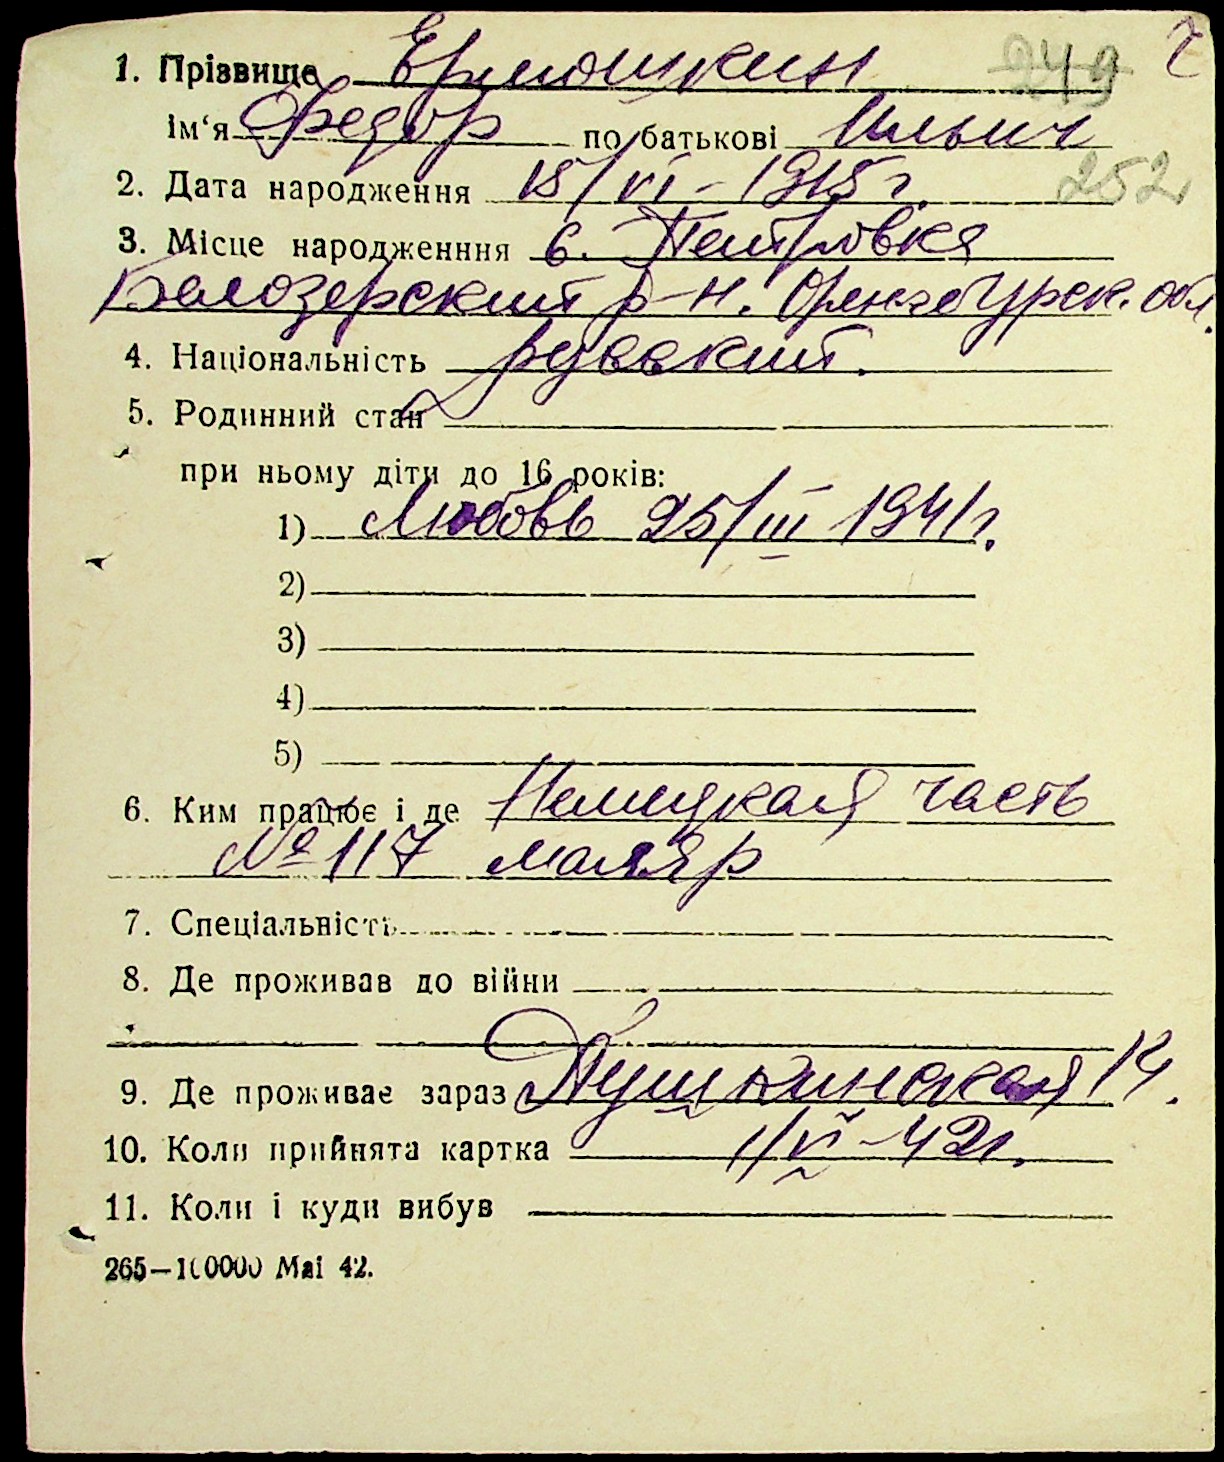 249 7
1. Прізвище Ермошкин
ім‘я Федор по батькові Ильич
252
2. Дата народження 15/VI – 1915 г.
3. Місце народженння с. Петровка
Белозерский р-н. Оренгбурск. обл.
4. Національність русский.
5. Родинний стан
при ньому діти до 16 років:
1) Любовь 25/III 1941 г.
2)
3)
4)
5)
6. Ким працює і де Немецкая часть
№ 117 маляр
7. Спеціальність
8. Де проживав до війни
9. Де проживає зараз Пушкинская 14.
10. Коли прийнята картка 1/VI – 42 г.
11. Коли і куди вибув
265—100000 Маі 42.